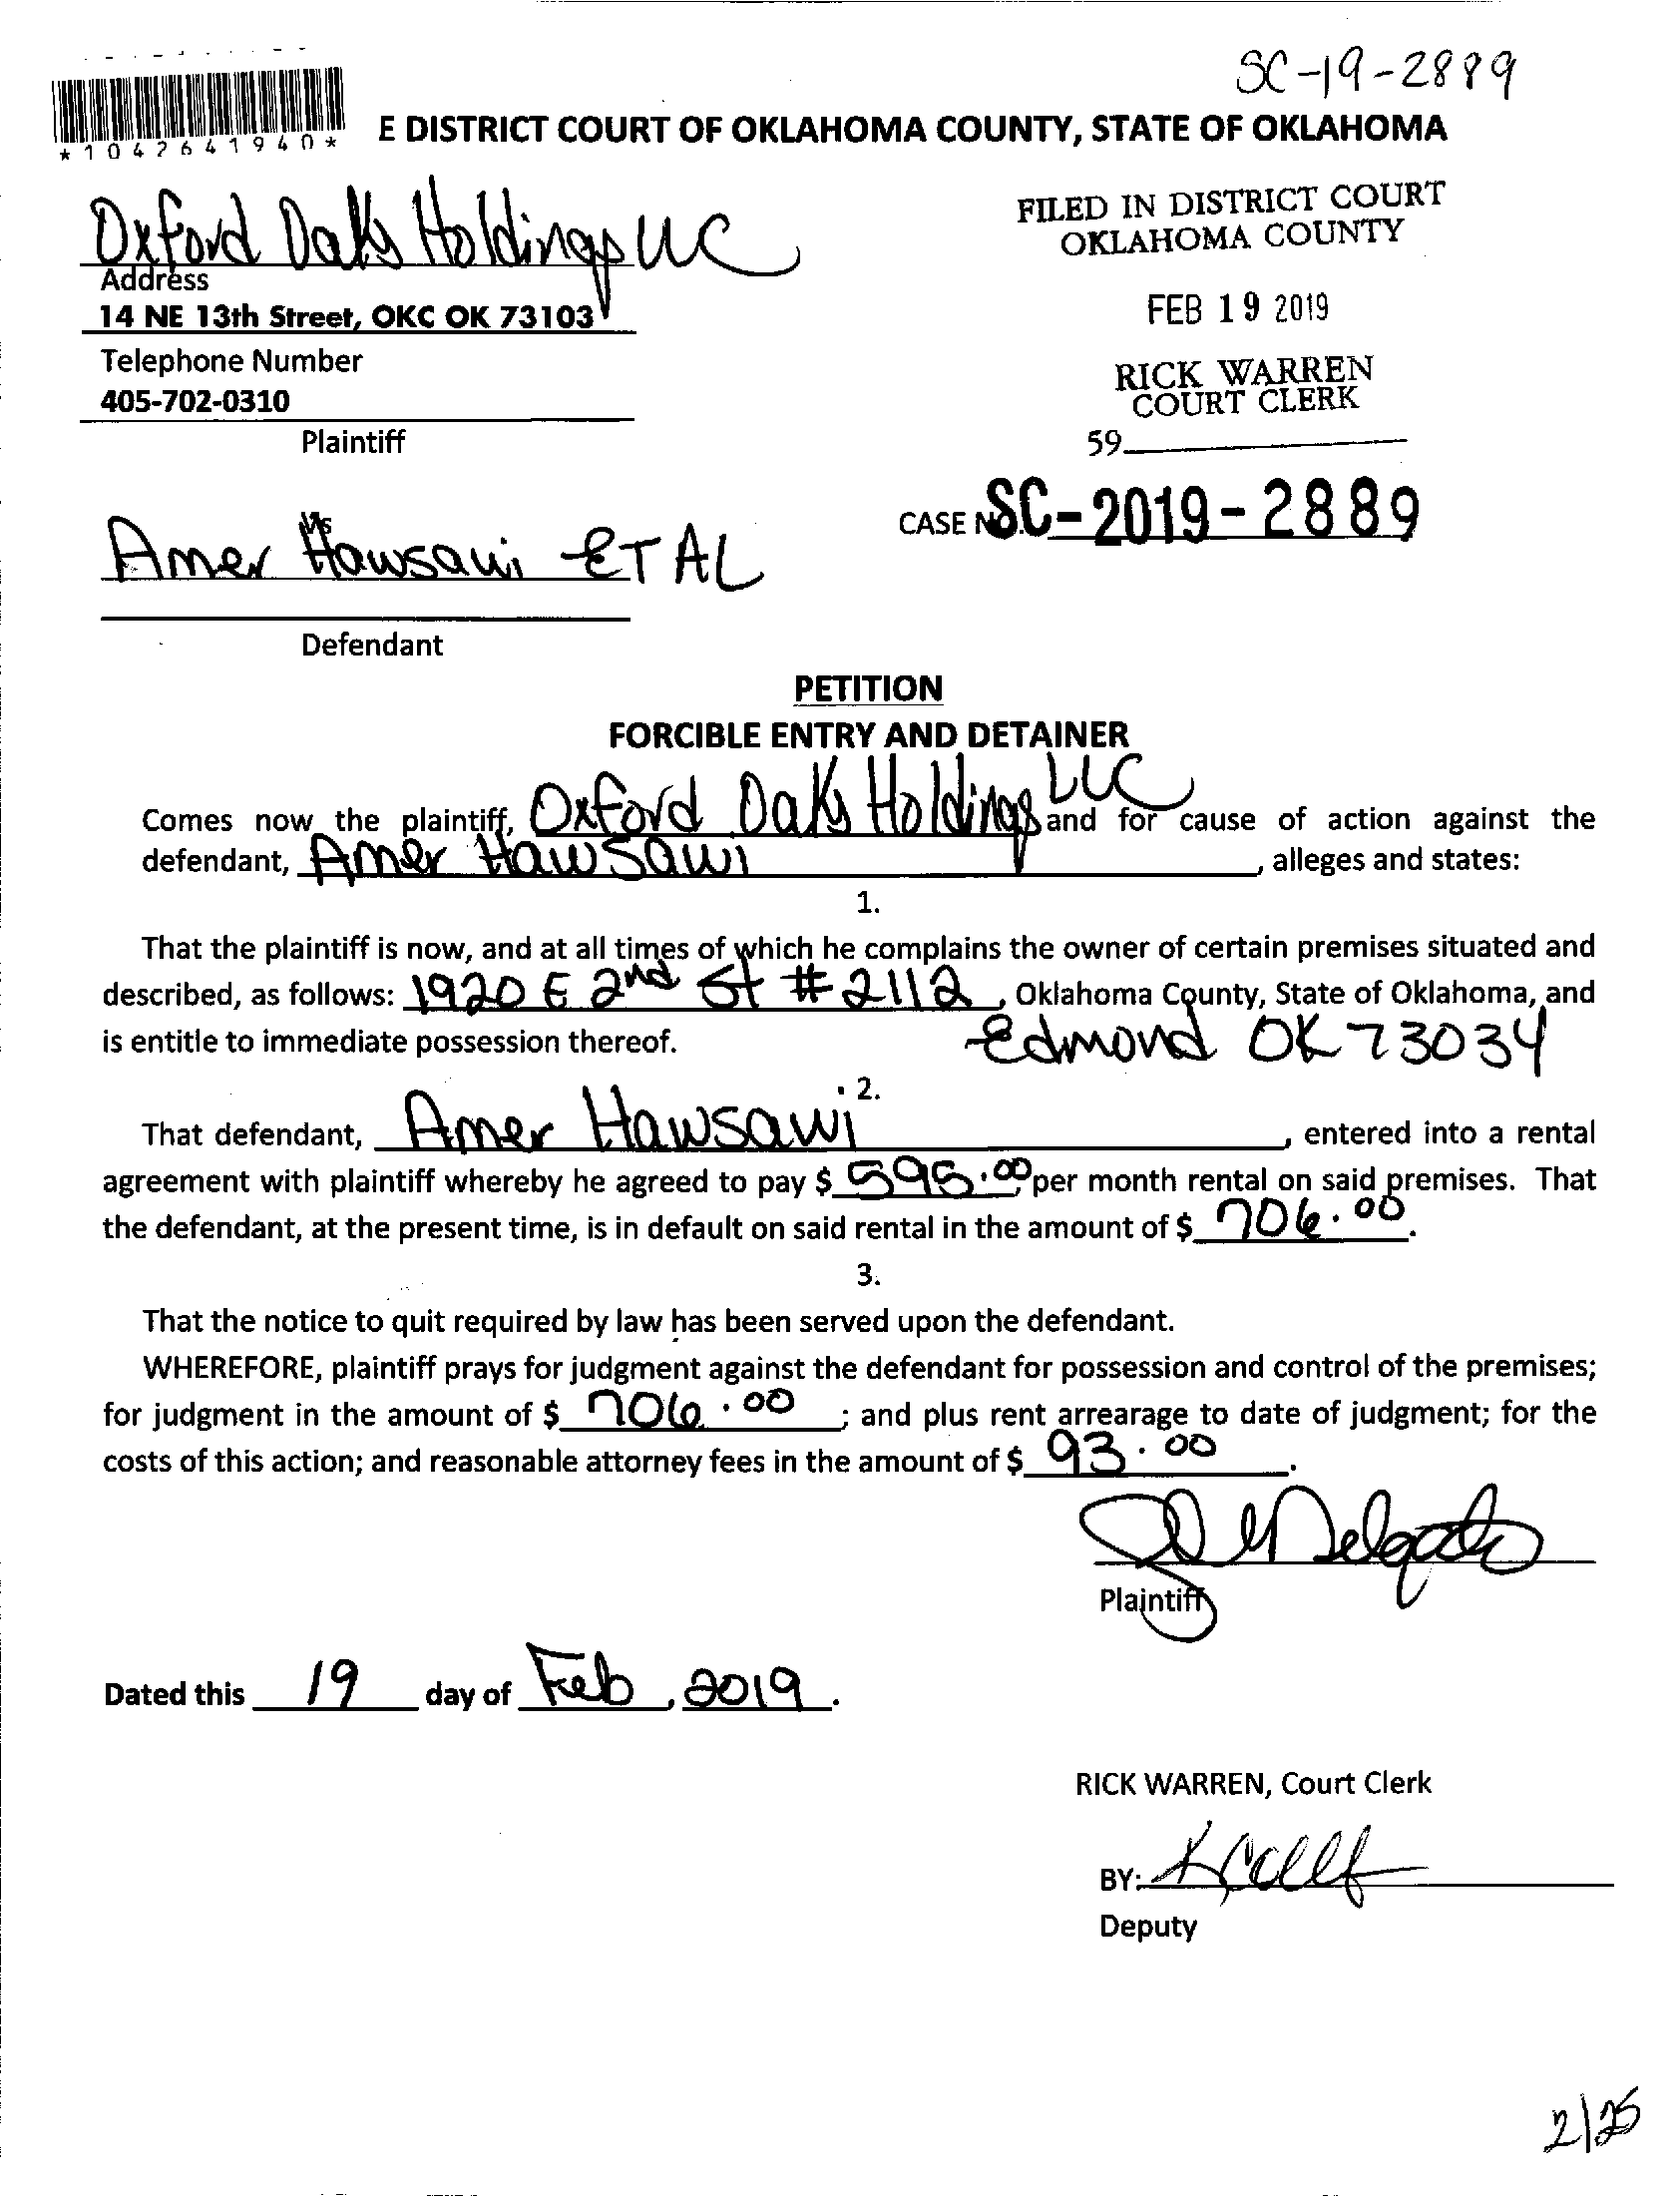 SC-19-2889
*1042641940*
E DISTRICT COURT OF OKLAHOMA COUNTY, STATE OF OKLAHOMA
Oxford Oaks Holdings LLC
Address
14 NE 13th Street, OKC OK 73103
Telephone Number
405-702-0310
Plaintiff
FILED IN DISTRICT COURT
OKLAHOMA COUNTY
FEB 19 2019
RICK WARREN
COURT CLERK
59
CASE NO. SC-2019-2889
vs
Amer Hawsawi ET AL
Defendant
PETITION
FORCIBLE ENTRY AND DETAINER
Comes now the plaintiff, Oxford Oaks Holdings LLC and for cause of action against the
defendant, Amer Hawsawi, alleges and states:
1.
That the plaintiff is now, and at all times of which he complains the owner of certain premises situated and
described, as follows: 1920 E 2nd St #2112, Oklahoma County, State of Oklahoma, and
is entitle to immediate possession thereof. Edmond OK 73034
2.
That defendant, Amer Hawsawi, entered into a rental
agreement with plaintiff whereby he agreed to pay $ 595.00, per month rental on said premises. That
the defendant, at the present time, is in default on said rental in the amount of $ 706.00.
3.
That the notice to quit required by law has been served upon the defendant.
WHEREFORE, plaintiff prays for judgment against the defendant for possession and control of the premises;
for judgment in the amount of $ 706.00; and plus rent arrearage to date of judgment; for the
costs of this action; and reasonable attorney fees in the amount of $ 93.00.
Delgado
Plaintiff
Dated this 19 day of Feb, 2019.
RICK WARREN, Court Clerk
BY:
Deputy
2/25